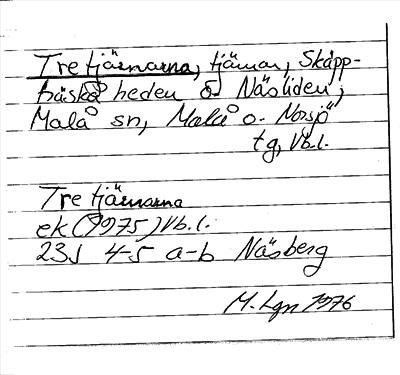 Tre tjärnarna, tjärnar, Skäpp-
träskå heden o. Näsliden,
Malå sn, Malå o. Norsjö
tg, Vb.l.
Tre tjärnarna
ek (1975) Vb.l.
23J 4-5 a-b Näsberg
M. Lgn 1976